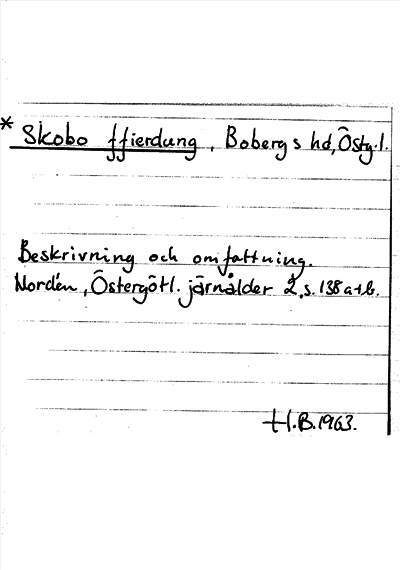 * Skobo ffierdung, Bobergs hd, Östg.l.
Beskrivning och omfattning.
Nordén, Östergötl. järnålder 2, s. 138 a+b.
H.B. 1963.